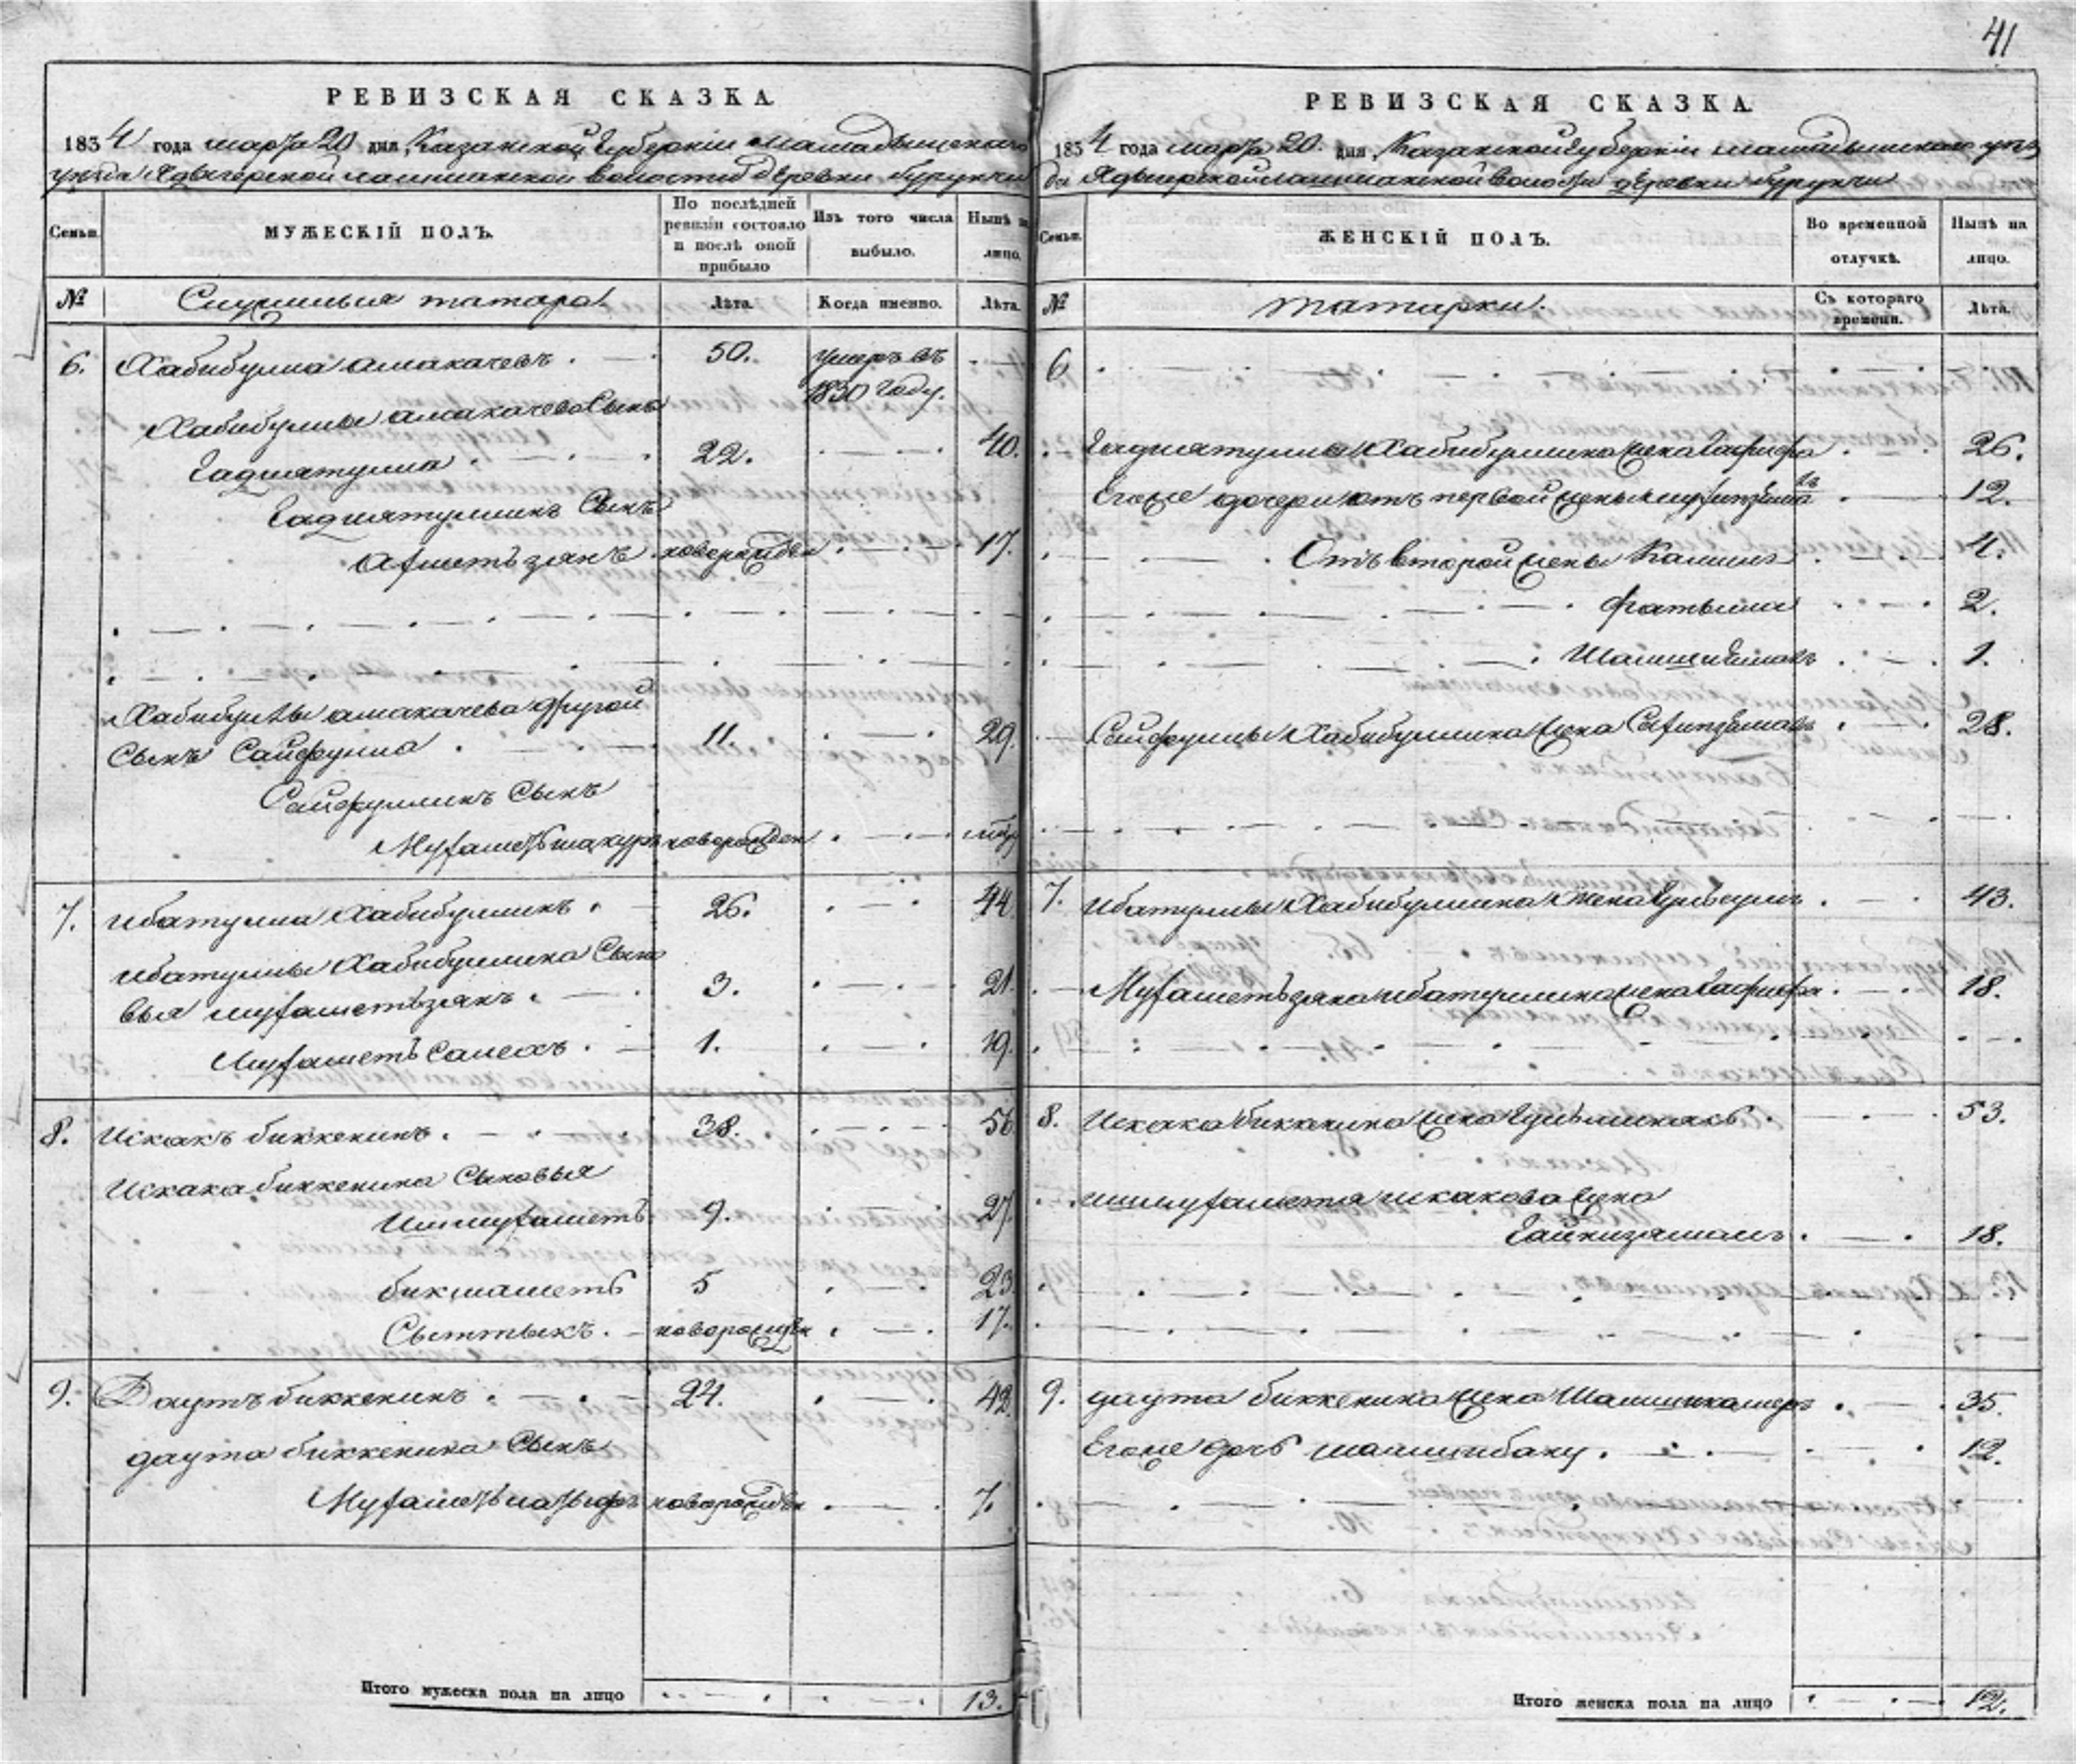 41
РЕВИЗСКАЯ СКАЗКА
1834 года марта 20 дня, Казанской Губернии Мамадышского
уезда Лашманской волости деревни Бурунчи
Семьи.
МУЖЕСКІЙ ПОЛЪ.
По послѣдней ревизіи состояло и послѣ оной прибыло
Изъ того числа выбыло.
Нынѣ на лицо.
№
татара.
Лѣта.
Когда именно.
Лѣта.
6. Хабибулла Амакачевъ 50. умеръ въ
1830 году.
Хабибуллы Амакачева Сынъ
Гадиятулла 22. 40.
Гадиятуллинъ Сынъ
Ахметьзянъ новорожденъ 17.
Хабибуллы Амакачева другой
Сынъ Сайфулла 11. 29.
Сайфуллинъ Сынъ
Мухаметьшакуръ новорожден
7. Ибатулла Хабибуллинъ 26. 44
Ибатуллы Хабибуллина Сыно
вья Мухаметьзянъ 3. 21.
Мухаметь Салехъ 1. 19.
8. Искакъ Биккенинъ 38. 56
Искака Биккенина Сыновья
Ишмухаметь 9. 27.
Бикмаметь 5 23
Сыттыкъ новорожден 17.
9. Даутъ Биккенинъ 24. 42.
Даута Биккенина Сынъ
новорожден 7.
Итого мужеска пола на лицо 13.
РЕВИЗСКАЯ СКАЗКА
1834 года марта 20 дня, Казанской Губернии Мамадышского уез
да Лашманской волости деревни Бурунчи
Семьи.
ЖЕНСКІЙ ПОЛЪ.
Во временной отлучкѣ.
Нынѣ на лицо.
№
татарки.
Съ котораго времени.
Лѣта.
6
Гадиятуллы Хабибуллина жена Гафифа 26.
Егоже дочери отъ первой жены 12.
Отъ второй жены 4.
Фатыма 2.
1.
Сайфуллы Хабибуллина жена 28.
7. Ибатуллы Хабибуллина жена 43.
Мухаметьзяна Ибатуллина жена Гафифа 18.
8. Искака Биккенина жена 53.
Ишмухаметя Искакова жена
Гайнизямалъ 18.
9. Даута Биккенина жена Шамшикамеръ 35.
Егоже дочь Шамшибану 12.
Итого женска пола на лицо 12.